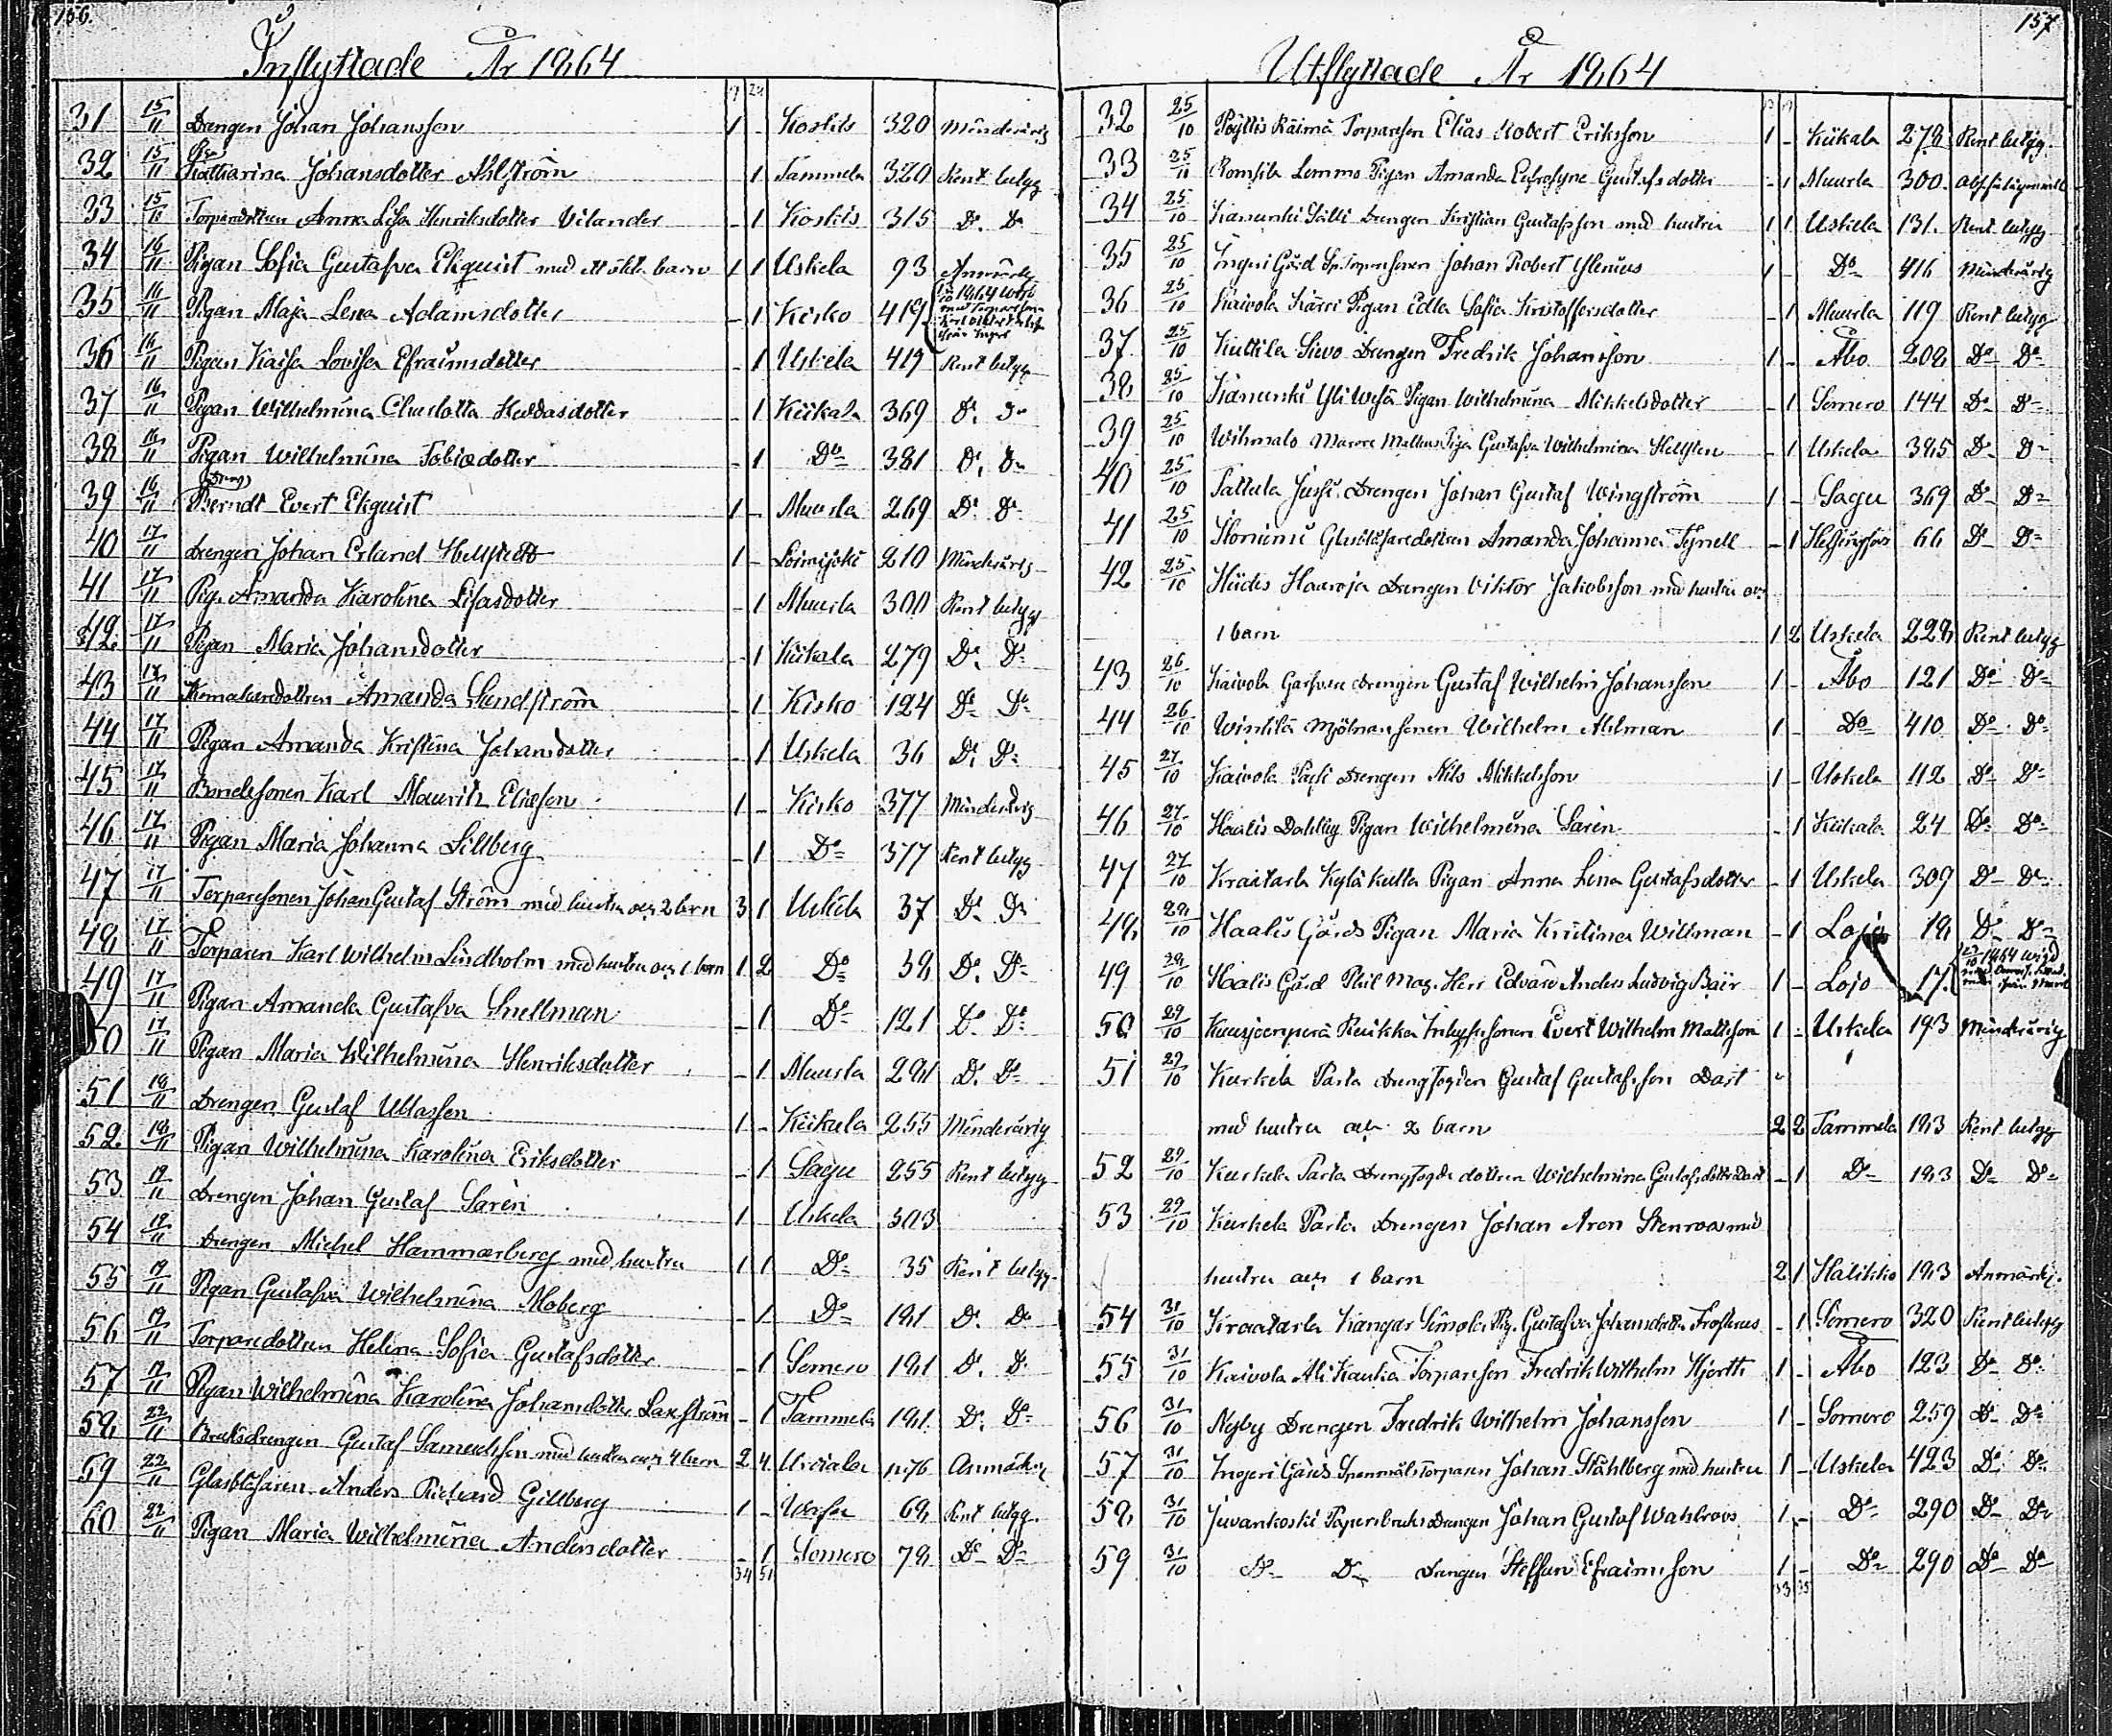 156.
Inflyttade År 1864
31 15/11 Drengen Johan Johansson 1 - Koskis 320 Minderårig
32 15/11 Katharina Johansdotter Ahlström - 1 Tammela 320 Rent betyg
33 15/11 Torparedottren Anna Lisa Henriksdotter Vilander - 1 Koskis 315 Do Do
34 16/11 Pigan Sofia Gustafva Ekquist med oäkta barn 1 1 Uskela 93 Anmärkn
35 16/11 Pigan Maja Lena Adamsdotter - 1 Kisko 419
36 16/11 Pigan Kaisa Lovisa Efraimsdotter - 1 Uskela 419 Rent betyg
37 16/11 Pigan Wilhelmina Charlotta Heddasdotter - 1 Kiikala 369 Do Do
38 16/11 Pigan Wilhelmina Tobiadotter - 1 Do 381 Do Do
39 16/11 Berndt Evert Ekquist 1 - Muurla 269 Do Do
40 17/11 Drengen Johan Erland 1 - Loimijoki 210 Minderårig
41 17/11 Pig. Amanda Karolina Lisasdotter - 1 Muurla 300 Rent betyg
42. 17/11 Pigan Maria Johansdotter - 1 Kiikala 279 Do Do
43 17/11 Amanda Sundström - 1 Kisko 124 Do Do
44 17/11 Pigan Amanda Kristina Johansdotter - 1 Uskela 36 Do Do
45 17/11 Bondesonen Karl Mauritz Eliasson 1 - Kisko 377 Minderårig
46 17/11 Pigan Maria Johanna Lillberg - 1 Do 377 Rent betyg
47 17/11 Torparesonen Johan Gustaf Ström med hustru och 2 barn 3 1 Uskela 37 Do Do
48 17/11 Torparen Karl Wilhelm Lindholm med hustru och 1 barn 1 2 Do 38 Do Do
49 17/11 Pigan Amanda Gustafva Snellman - 1 Do 121 Do Do
50 17/11 Pigan Maria Wilhelmina Henriksdotter - 1 Muurla 281 Do Do
51 18/11 Drengen Gustaf Ullasson 1 - Kiikala 255 Minderårig
52. 18/11 Pigan Wilhelmina Karolina Eriksdotter - 1 Sagu 255 Rent betyg
53 19/11 Drengen Johan Gustaf Sarén 1 Uskela 303
54 19/11 Drengen Michel Hammarberg med hustru 1 1 Do 35 Rent betyg
55 19/11 Pigan Gustafva Wilhelmina Moberg - 1 Do 181 Do Do
56 19/11 Torparedottren Helena Sofia Gustafsdotter - 1 Somero 181 Do Do
57 19/11 Pigan Wilhelmina Karolina Johansdotter Laxström - 1 Tammela 181 Do Do
58 22/11 Bruksdrengen Gustaf Samuelsson med hustru och 4 barn 2 4 Urdiala Anmärkn
59 22/11 Glasblåsaren Anders Richard Gillberg 1 - Wasa 68 Rent betyg.
60 22/11 Pigan Maria Wilhelmina Andersdotter - 1 Somero 78 Do Do
34 51
157
Utflyttade År 1864
32 25/10 Pöytis Räimä Torpareson Elias Robert Eriksson 1 - Kiikala 278 Rent betyg.
33 25/10 Romsila Lemmo Pigan Amanda Eufrosyne Gustafsdotter - 1 Muurla 300
34 25/10 Kanunki Tälli Drengen Kristian Gustafsson med hustru 1 1 Uskela 131. Rent betyg
35 25/10 Ingeri Gård Johan Robert Ylenius 1 - Do 416 Minderårig
36 25/10 Kaivola Kärri Pigan Edla Sofia Kristoffersdotter - 1 Muurla 119 Rent betyg
37 25/10 Kuttila Sievo Drengen Fredrik Johansson 1 - Åbo 208 Do Do
38 25/10 Kanunki Yli Wesa Pigan Wilhelmina Mikkelsdotter - 1 Somero 144 Do Do
39 25/10 Wihmalo Piga Gustafva Wilhelmina Hellsten - 1 Uskela 385 Do Do
40 25/10 Pattula Jussi Drengen Johan Gustaf Wingström 1 - Sagu 369 Do Do
41 25/10 Glasblåsaredottren Amanda Johanna Fynell - 1 Helsingfors 66 Do Do
42 25/10 Hiides Haaroja Drengen Viktor Jakobsson med hustru och
1 barn 1 2 Uskela 228 Rent betyg
43 26/10 Kaivola Drengen Gustaf Wilhelm Johansson 1 - Åbo 121 Do Do
44 26/10 Wintilä Mjölnaresonen Wilhelm Ahlman 1 - Do 410 Do Do
45 27/10 Kaivola Drengen Nils Mikkelsson 1 - Uskela 112 Do Do
46 27/10 Haalis Dahlby Pigan Wilhelmina Sarén - 1 Kiikala 24 Do Do
47 27/10 Kraatarla Kyläkulla Pigan Anna Lena Gustafsdotter - 1 Uskela 309 Do Do
48 28/10 Haalis Gårds Pigan Maria Kristina Willman - 1 Lojo 18 Do Do
49 28/10 Haalis Gård Phil Mag. Herr Edvard Anders Ludvig Bäir 1 - Lojo 17.
50 29/10 Kuusjoenperä Ruikka Inhysessonen Evert Wilhelm Mattsson 1 - Uskela 193 Minderårig
51 29/10 Kurkela Parta Drengfogden Gustaf Gustafsson Dast
med hustru och 2 barn 2 2 Tammela 183 Rent betyg
52 29/10 Kurkela Parta Drengfogde dottren Wilhelmina Gustafsdotter Dast - 1 Do 183 Do Do
53 29/10 Kurkela Parta Drengen Johan Aron Stenroos med
hustru och 1 barn 2 1 Halikko 183 Anmärkn.
54 31/10 Kraatarla Kangar Simola Pig. Gustafva Johansdotter Frosterus - 1 Somero 320 Rent betyg
55 31/10 Kaivola Ali Kaukia Torpareson Fredrik Wilhelm Hjorth 1 - Åbo 123 Do Do
56 31/10 Nyby Drengen Fredrik Wilhelm Johansson 1 - Somero 259 Do Do
57 31/10 Ingeri Gårds Spanmålstorparen Johan Ståhlberg med hustru 1 - Uskela 423 Do Do
58 31/10 Juvankoski Papersbruks Drengen Johan Gustaf Wahlroos 1 - Do 290 Do Do
59 31/10 Do Do Drengen Steffan Efraimsson 1 - Do 290 Do Do